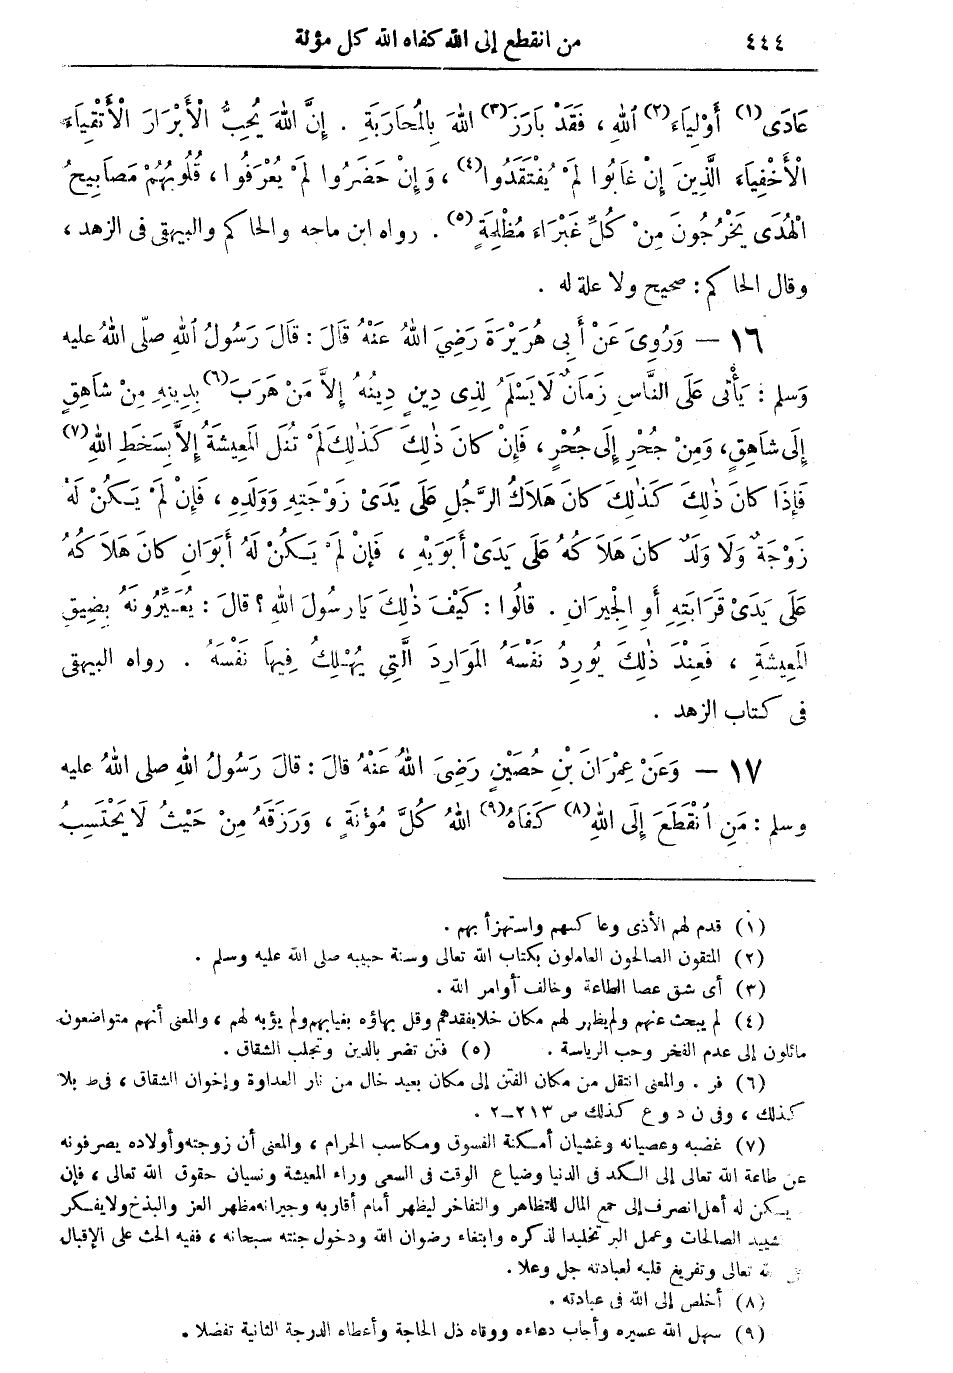 ٤٤٤ من انقطع إلى الله كفاه الله كل مؤلة
عَادَى(١) أَوْلِيَاءَ(٢) اللهِ ، فَقَدْ بَارَزَ(٣) اللهَ بِالْمُحَارَبَةِ . إِنَّ اللهَ يُحِبُّ الْأَبْرَارَ الْأَتْقِيَاءَ
الْأَخْفِيَاءَ الَّذِينَ إِنْ غَابُوا لَمْ يُفْتَقَدُوا(٤) ، وَإِنْ حَضَرُوا لَمْ يُعْرَفُوا ، قُلُوبُهُمْ مَصَابِيحُ
الْهُدَى يَخْرُجُونَ مِنْ كُلِّ غَبْرَاءَ مُظْلِمَةٍ(٥) . رواه ابن ماجه والحاكم والبيهقى فى الزهد ،
وقال الحاكم : صحيح ولا علة له .
١٦ – وَرُوِىَ عَنْ أَبِى هُرَيْرَةَ رَضِيَ اللهُ عَنْهُ قَالَ : قَالَ رَسُولُ اللهِ صلّى اللهُ عليه
وَسلم : يَأْتِى عَلَى النَّاسِ زَمَانٌ لَا يَسْلَمُ لِذِى دِينٍ دِينُهُ إِلاَّ مَنْ هَرَبَ(٦) بِدِينِهِ مِنْ شَاهِقٍ
إِلَى شَاهِقٍ، وَمِنْ جُحْرٍ إِلَى جُحْرٍ ، فَإِنْ كانَ ذٰلِكَ كَذٰلِكَ لَمْ تُنَلِ الْمَعِيشَةُ إِلاَّ بِسَخَطِ اللهِ(٧)
فَإِذَا كانَ ذٰلِكَ كَذٰلِكَ كانَ هَلَاكُ الرَّجُلِ عَلَى يَدَىْ زَوْجَتِهِ وَوَلَدِهِ ، فَإِنْ لَمْ يَكُنْ لَهُ
زَوْجَةٌ وَلَا وَلَدٌ كانَ هَلَاكُهُ عَلَى يَدَىْ أَبَوَيْهِ ، فَإِنْ لَمْ يَكُنْ لَهُ أَبَوَانِ كانَ هَلَاكُهُ
عَلَى يَدَىْ قَرَابَتِهِ أَوِ الْجِيرَانِ . قالُوا : كَيْفَ ذٰلِكَ يَا رسولَ اللهِ ؟ قالَ : يُعَيِّرُونَهُ بِضِيقِ
الْمَعِيشَةِ ، فَعِنْدَ ذٰلِكَ يُورِدُ نَفْسَهُ الْمَوَارِدَ الَّتِي يُهْلِكُ فِيهَا نَفْسَهُ . رواه البيهقى
فى كتاب الزهد .
١٧ – وَعَنْ عِمْرَانَ بْنِ حُصَيْنٍ رَضِىَ اللهُ عَنْهُ قالَ : قالَ رَسُولُ اللهِ صلى اللهُ عليه
وسلم : مَنِ انْقَطَعَ إِلَى اللهِ(٨) كَفَاهُ(٩) اللهُ كُلَّ مُؤْنَةٍ ، وَرَزَقَهُ مِنْ حَيْثُ لَا يَحْتَسِبُ
(١) قدم لهم الأذى وعاكسهم واستهزأ بهم .
(٢) المتقون الصالحون العاملون بكتاب الله تعالى وسنة حبيبه صلى الله عليه وسلم .
(٣) أى شق عصا الطاعة وخالف أوامر الله .
(٤) لم يبحث عنهم ولم يظهر لهم مكان خلا بفقدهم وقل بهاؤه بغيابهم ولم يؤبه لهم ، والمعنى أنهم متواضعون
مائلون إلى عدم الفخر وحب الرياسة . (٥) فتن تضر بالدين وتجلب الشقاق .
(٦) فر . والمعنى انتقل من مكان الفتن إلى مكان بعيد خال من نار العداوة وإخوان الشقاق ، فى ط بلا
كذلك ، وفى ن د و ع كذلك ص ٢١٣ – ٢ .
(٧) غضبه وعصيانه وغشيان أمكنة الفسوق ومكاسب الحرام ، والمعنى أن زوجته وأولاده يصرفونه
عن طاعة الله تعالى إلى الكد فى الدنيا وضياع الوقت فى السعى وراء المعيشة ونسيان حقوق الله تعالى ، فإن
يكن له أهل انصرف إلى جمع المال للتظاهر والتفاخر ليظهر أمام أقاربه وجيرانه مظهر العز والبذخ ولا يفكر
الصالحات وعمل البر تخليدا لذكره وابتغاء رضوان الله ودخول جنته سبحانه ، ففيه الحث على الإقبال
تعالى وتفريغ قلبه لعبادته جل وعلا .
(٨) أخلص إلى الله فى عبادته .
(٩) سهل الله عسيره وأجاب دعاءه ووقاه ذل الحاجة وأعطاه الدرجة الثانية تفضلا .